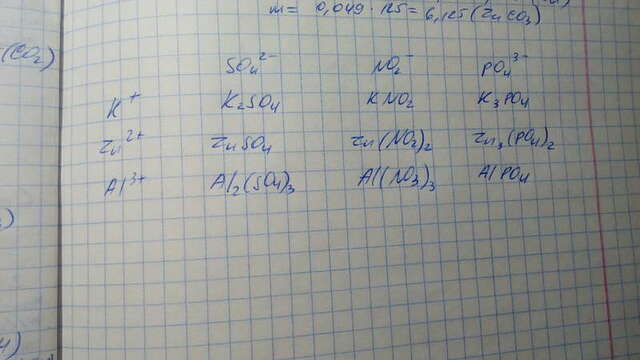 m = 0,049 · 125 = 6,125 (ZnCO3)
(CO2)
SO4 2- NO2 - PO4 3-
K + K2SO4 KNO2 K3PO4
Zn 2+ ZnSO4 Zn(NO2)2 Zn3(PO4)2
Al 3+ Al2(SO4)3 Al(NO3)3 AlPO4
)
4)